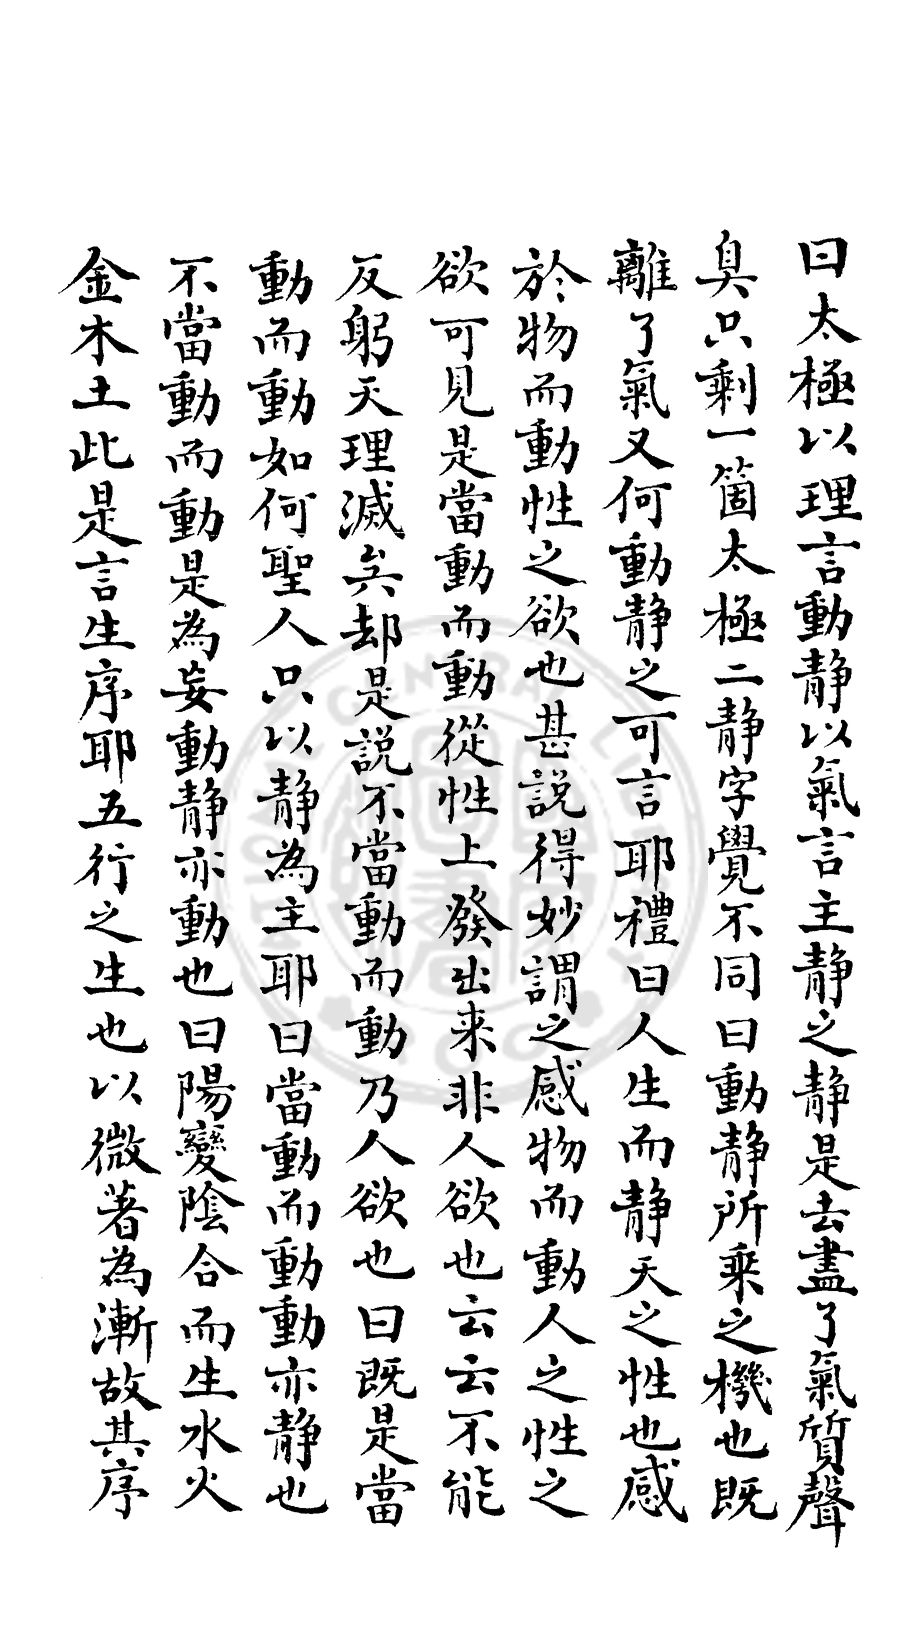 曰太極以理言動静以氣言主静之静是去盡了氣質聲
臭只剩一箇太極二静字覺不同曰動静所乗之機也既
離了氣又何動静之可言耶禮曰人生而静天之性也感
於物而動性之欲也甚説得妙謂之感物而動人之性之
欲可見是當動而動從性上發出来非人欲也云云不能
反躬天理滅矣却是説不當動而動乃人欲也曰既是當
動而動如何聖人只以静為主耶曰當動而動動亦静也
不當動而動是為妄動静亦動也曰陽變陰合而生水火
金木土此是言生序耶五行之生也以微著為漸故其序